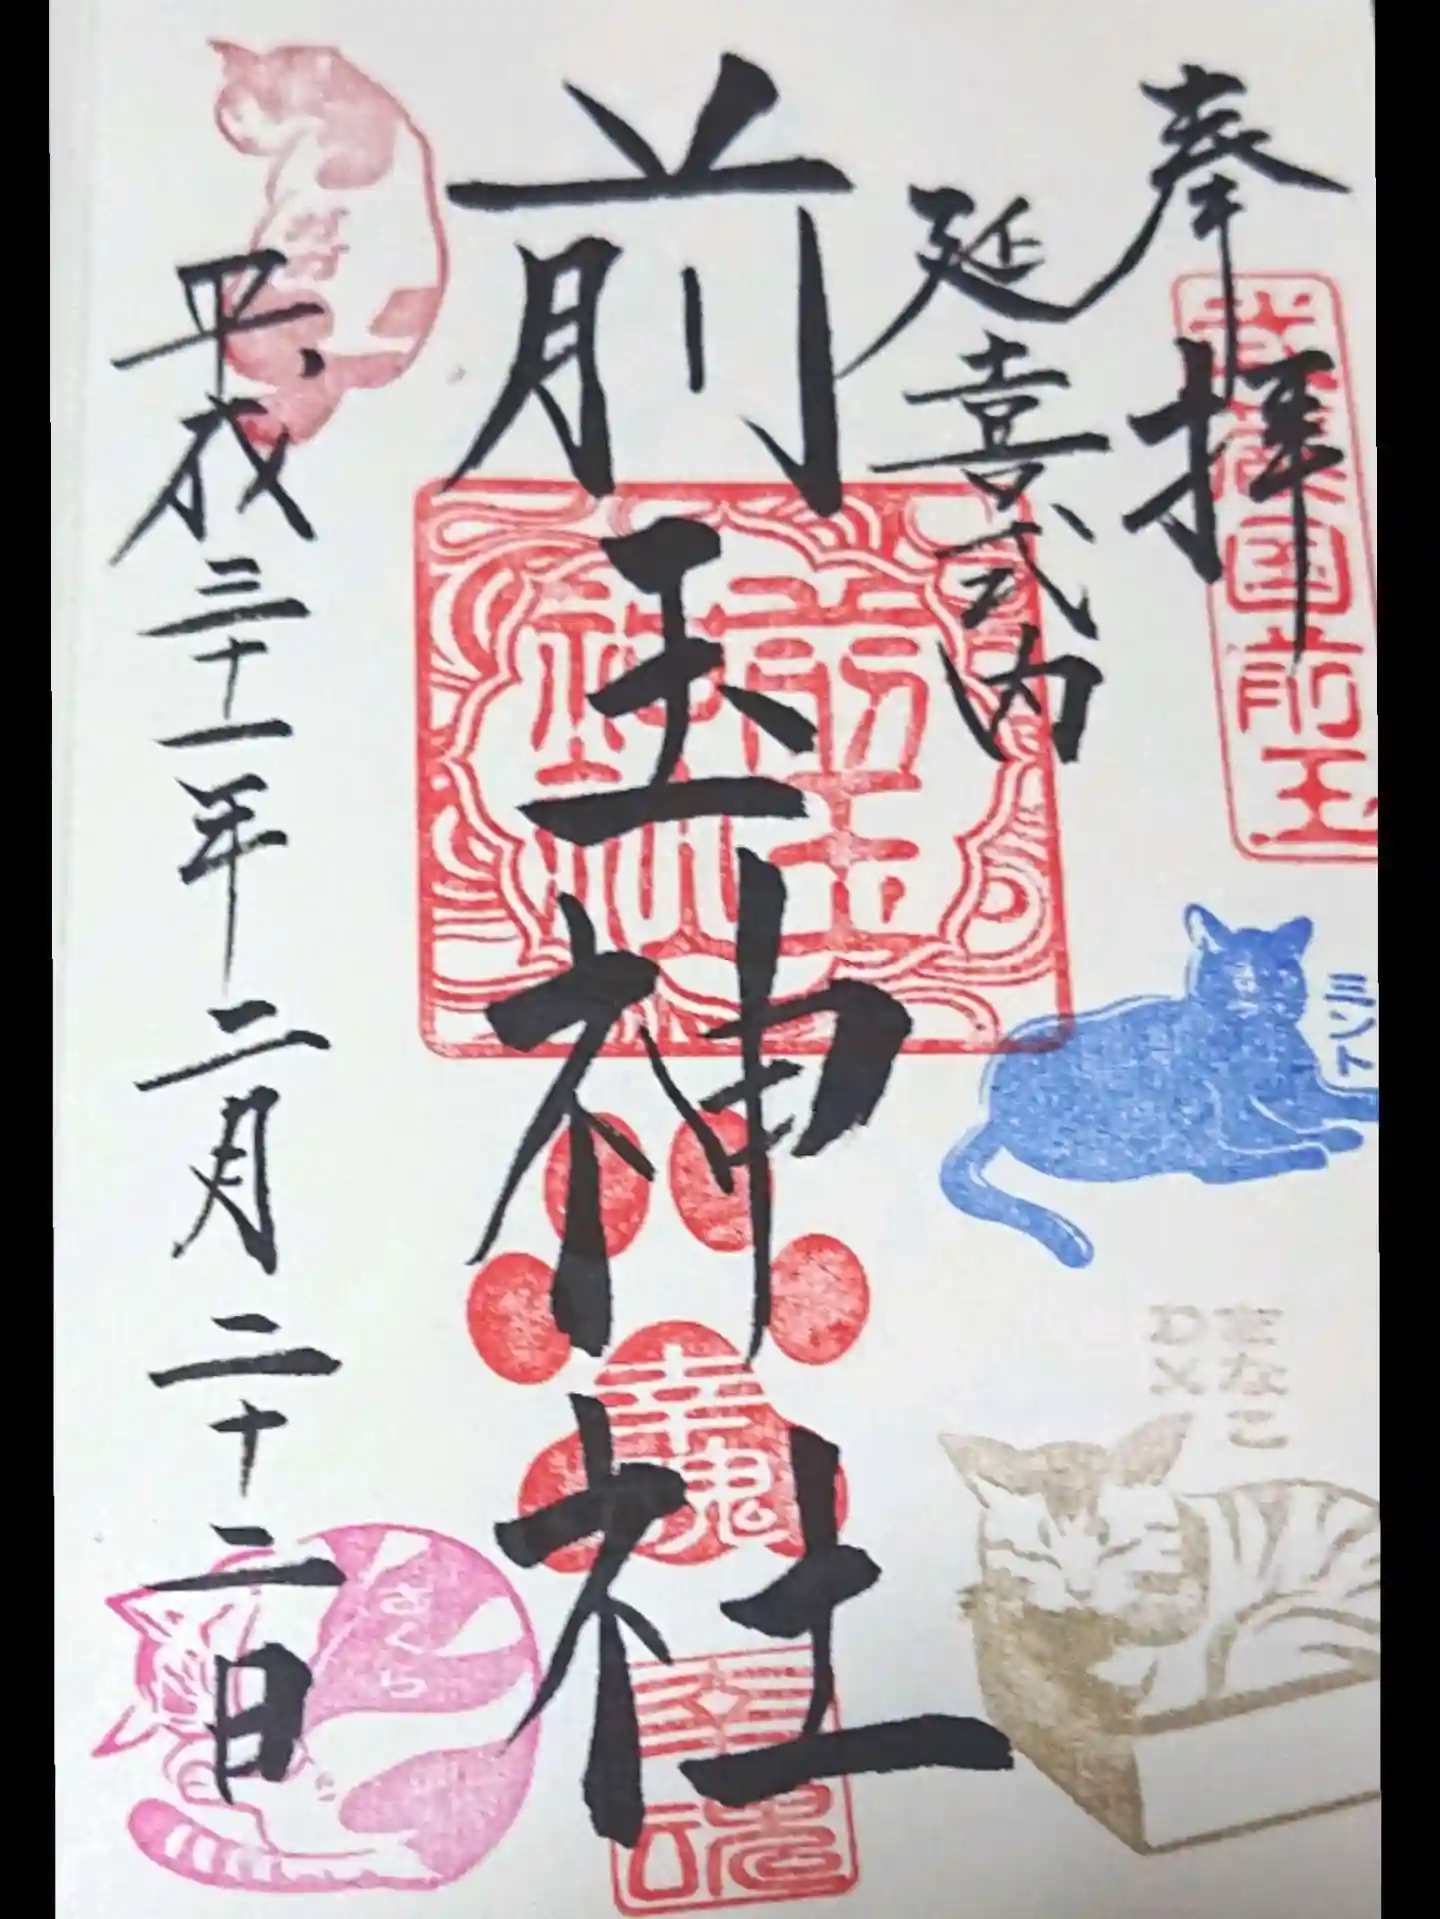 奉拝
国前玉
延喜式内
前玉神社
前玉神社
幸魂
平成三十一年二月二十二日
ミント
きなこ
DX
さくら